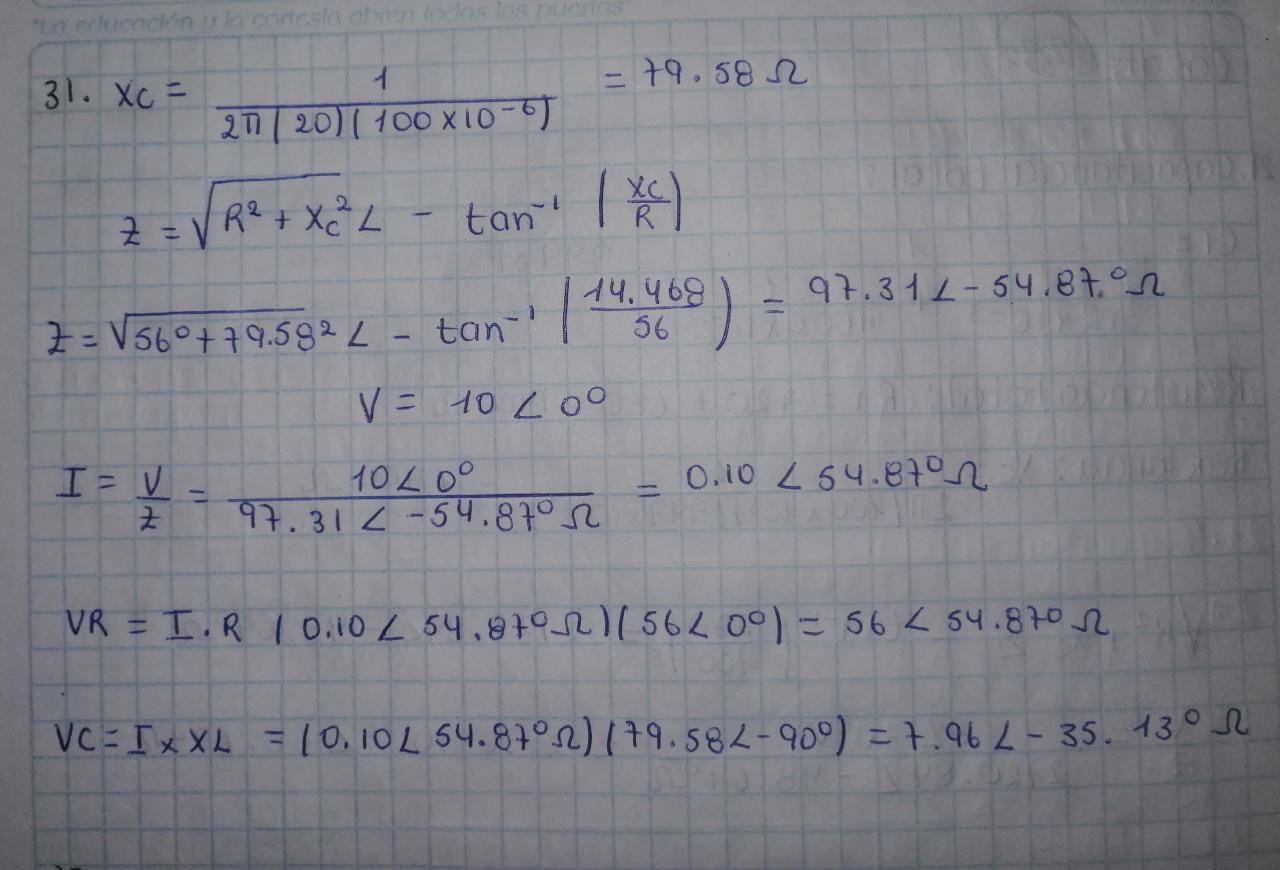 "La educación y la cortesía abren todas las puertas"
31. XC = 1 / 2π(20)(100×10⁻⁶) = 79.58 Ω
Z = √R² + Xc² ∠ - tan⁻¹ (XC / R)
Z = √56⁰ + 79.58² ∠ - tan⁻¹ (14.468 / 56) = 97.31 ∠ - 54.87.° Ω
V = 10 ∠ 0°
I = V / Z = 10 ∠ 0° / 97.31 ∠ -54.87° Ω = 0.10 ∠ 54.87° Ω
VR = I . R (0.10 ∠ 54.87° Ω)(56 ∠ 0°) = 56 ∠ 54.87° Ω
VC = I × XL = (0.10 ∠ 54.87° Ω)(79.58 ∠ -90°) = 7.96 ∠ - 35.13° Ω